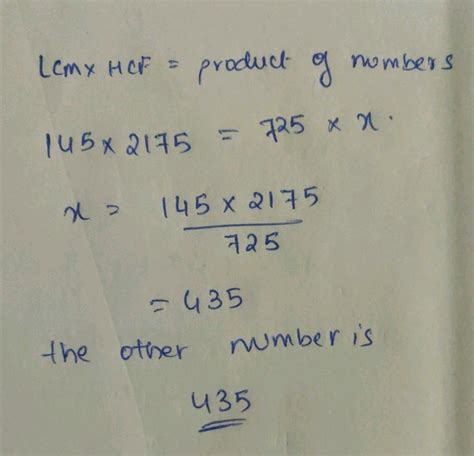 LCM x HCF = product of numbers
145 x 2175 = 725 x x.
x = 145 x 2175
725
= 435
the other number is
435